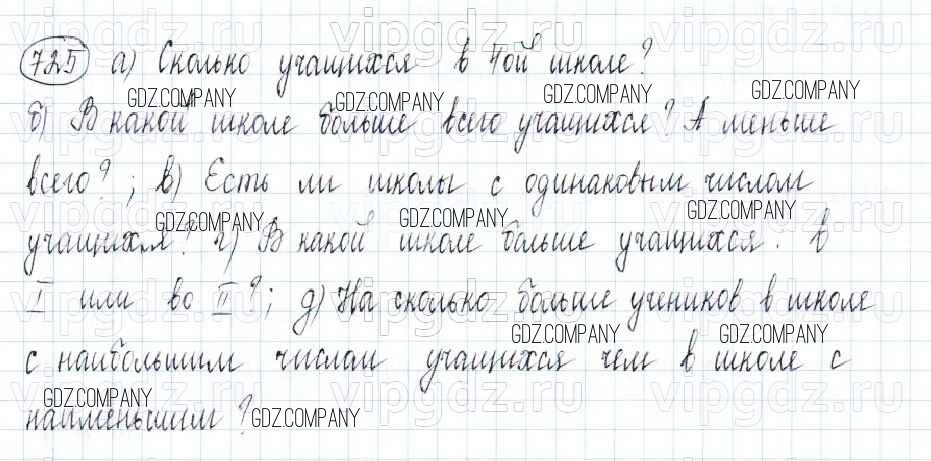 725 а) Сколько учащихся в 4ой школе?
б) В какой школе больше всего учащихся? А меньше
всего?; в) Есть ли школы с одинаковым числом
учащихся? г) В какой школе больше учащихся. в
I или во II?; д) На сколько больше учеников в школе
с наибольшим числом учащихся чем в школе с
наименьшим?
vipgdz.ru vipgdz.ru vipgdz.ru vipgdz.ru
GDZ.COMPANY GDZ.COMPANY GDZ.COMPANY GDZ.COMPANY
GDZ.COMPANY GDZ.COMPANY GDZ.COMPANY
GDZ.COMPANY GDZ.COMPANY
GDZ.COMPANY GDZ.COMPANY